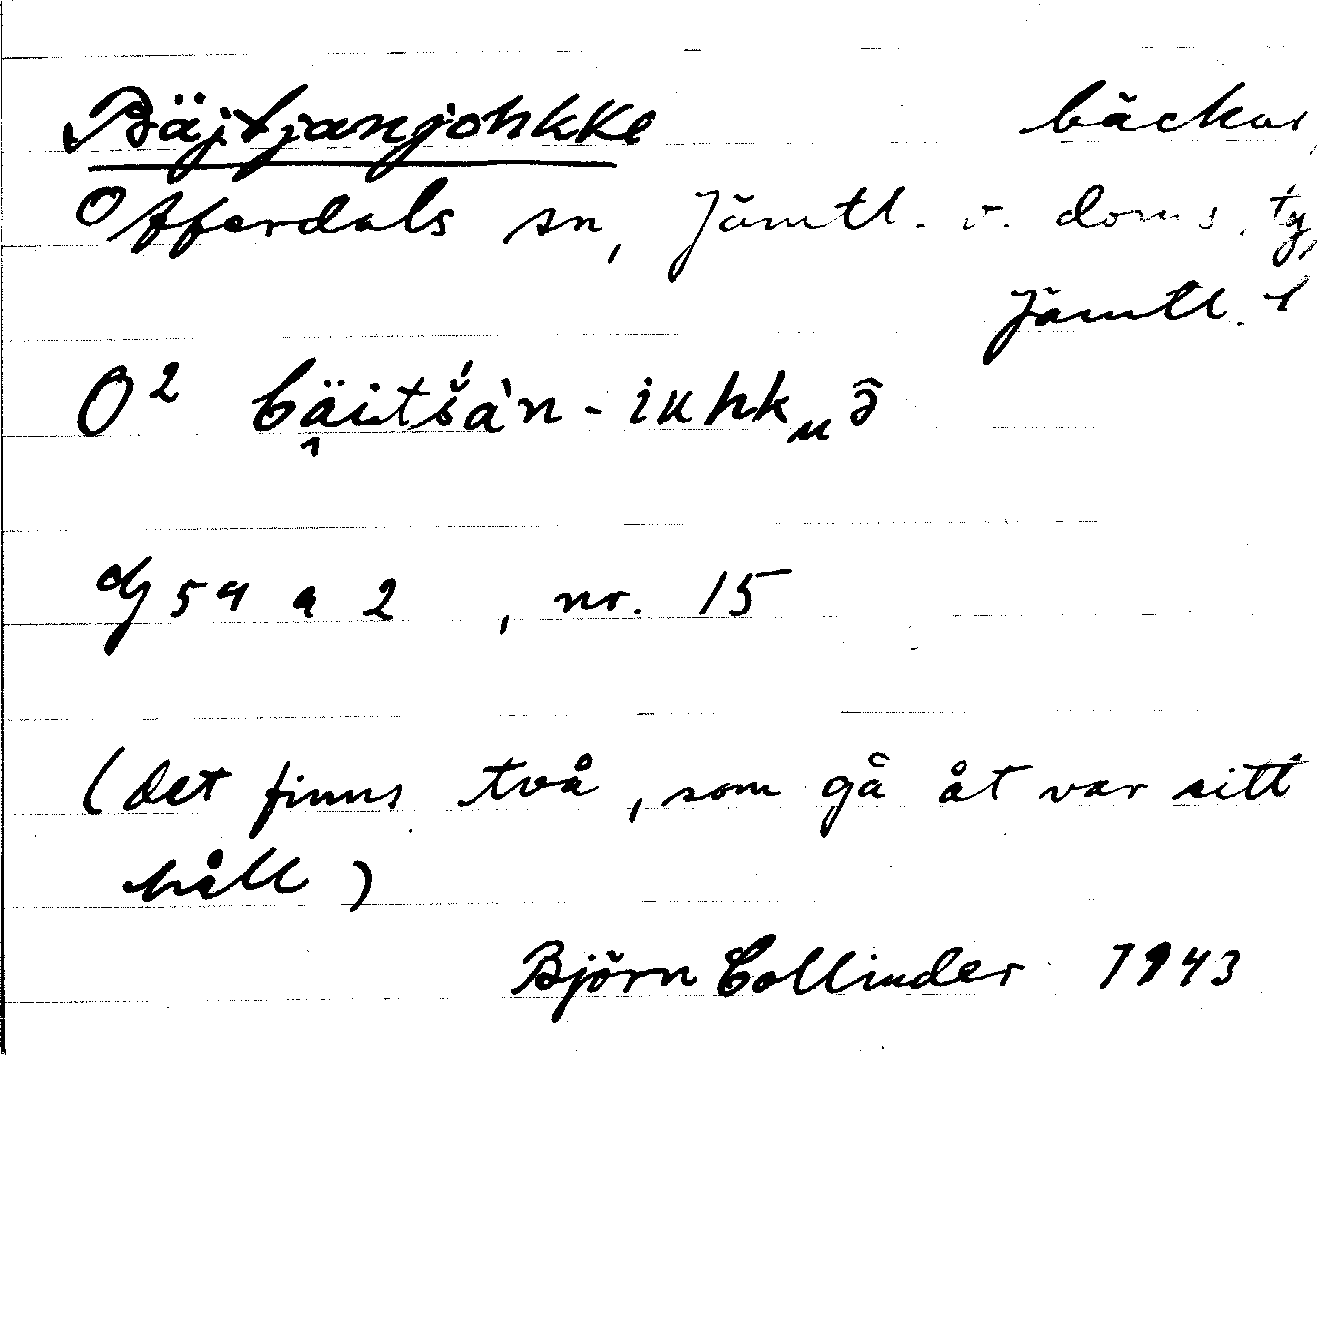 Bäjtjanjohkke bäckar,
Offerdals sn, Jämtl. v. doms. tg,
Jämtl. l
O² bäitšàn - iuhkuə̑
Gg 54 a 2 , nr. 15
(det finns två, som gå åt var sitt
håll)
Björn Collinder 1943